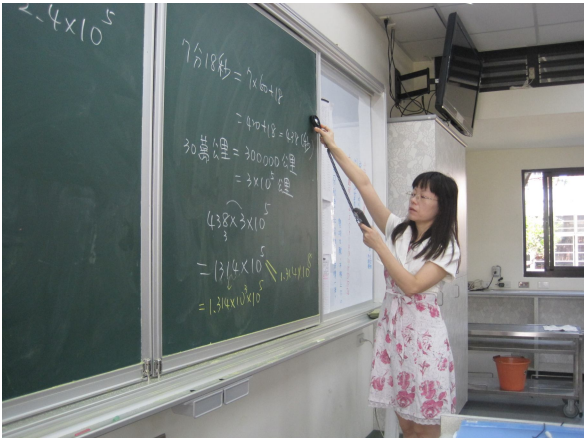 2.4×10⁵
7分18秒 = 7×60+18
= 420+18 = 438(秒)
30萬公里 = 300000公里
= 3×10⁵公里
438×3×10⁵
3
= 1314×10⁵ = 1.314×10⁸
= 1.314×10³×10⁵